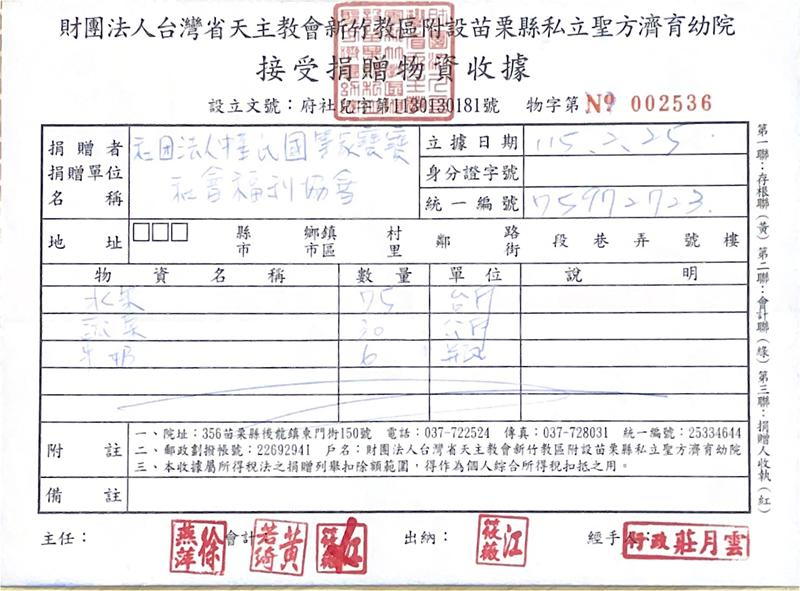 財團法人台灣省天主教會新竹教區附設苗栗縣私立聖方濟育幼院
接受捐贈物資收據
設立文號：府社兒字第1130130181號 物字第 № 002536
捐贈者
捐贈單位
名稱
社團法人中華民國等家寶寶
社會福利協會
立據日期 115.2.25.
身分證字號
統一編號 75972723.
地址 □□□ 縣市 鄉鎮市區 村里 鄰 路街 段 巷 弄 號 樓
物資名稱 數量 單位 說明
水果 75 台斤
蔬菜 30 台斤
牛奶 6 瓶
附註
一、院址：356苗栗縣後龍鎮東門街150號 電話：037-722524 傳真：037-728031 統一編號：25334644
二、郵政劃撥帳號：22692941 戶名：財團法人台灣省天主教會新竹教區附設苗栗縣私立聖方濟育幼院
三、本收據屬所得稅法之捐贈列舉扣除額範圍，得作為個人綜合所得稅扣抵之用。
備註
主任： 徐燕萍 會計 黃若綺 江筱薇 出納： 江筱薇 經手人： 行政莊月雲
第一聯：存根聯（黃）第二聯：會計聯（綠）第三聯：捐贈人收執（紅）